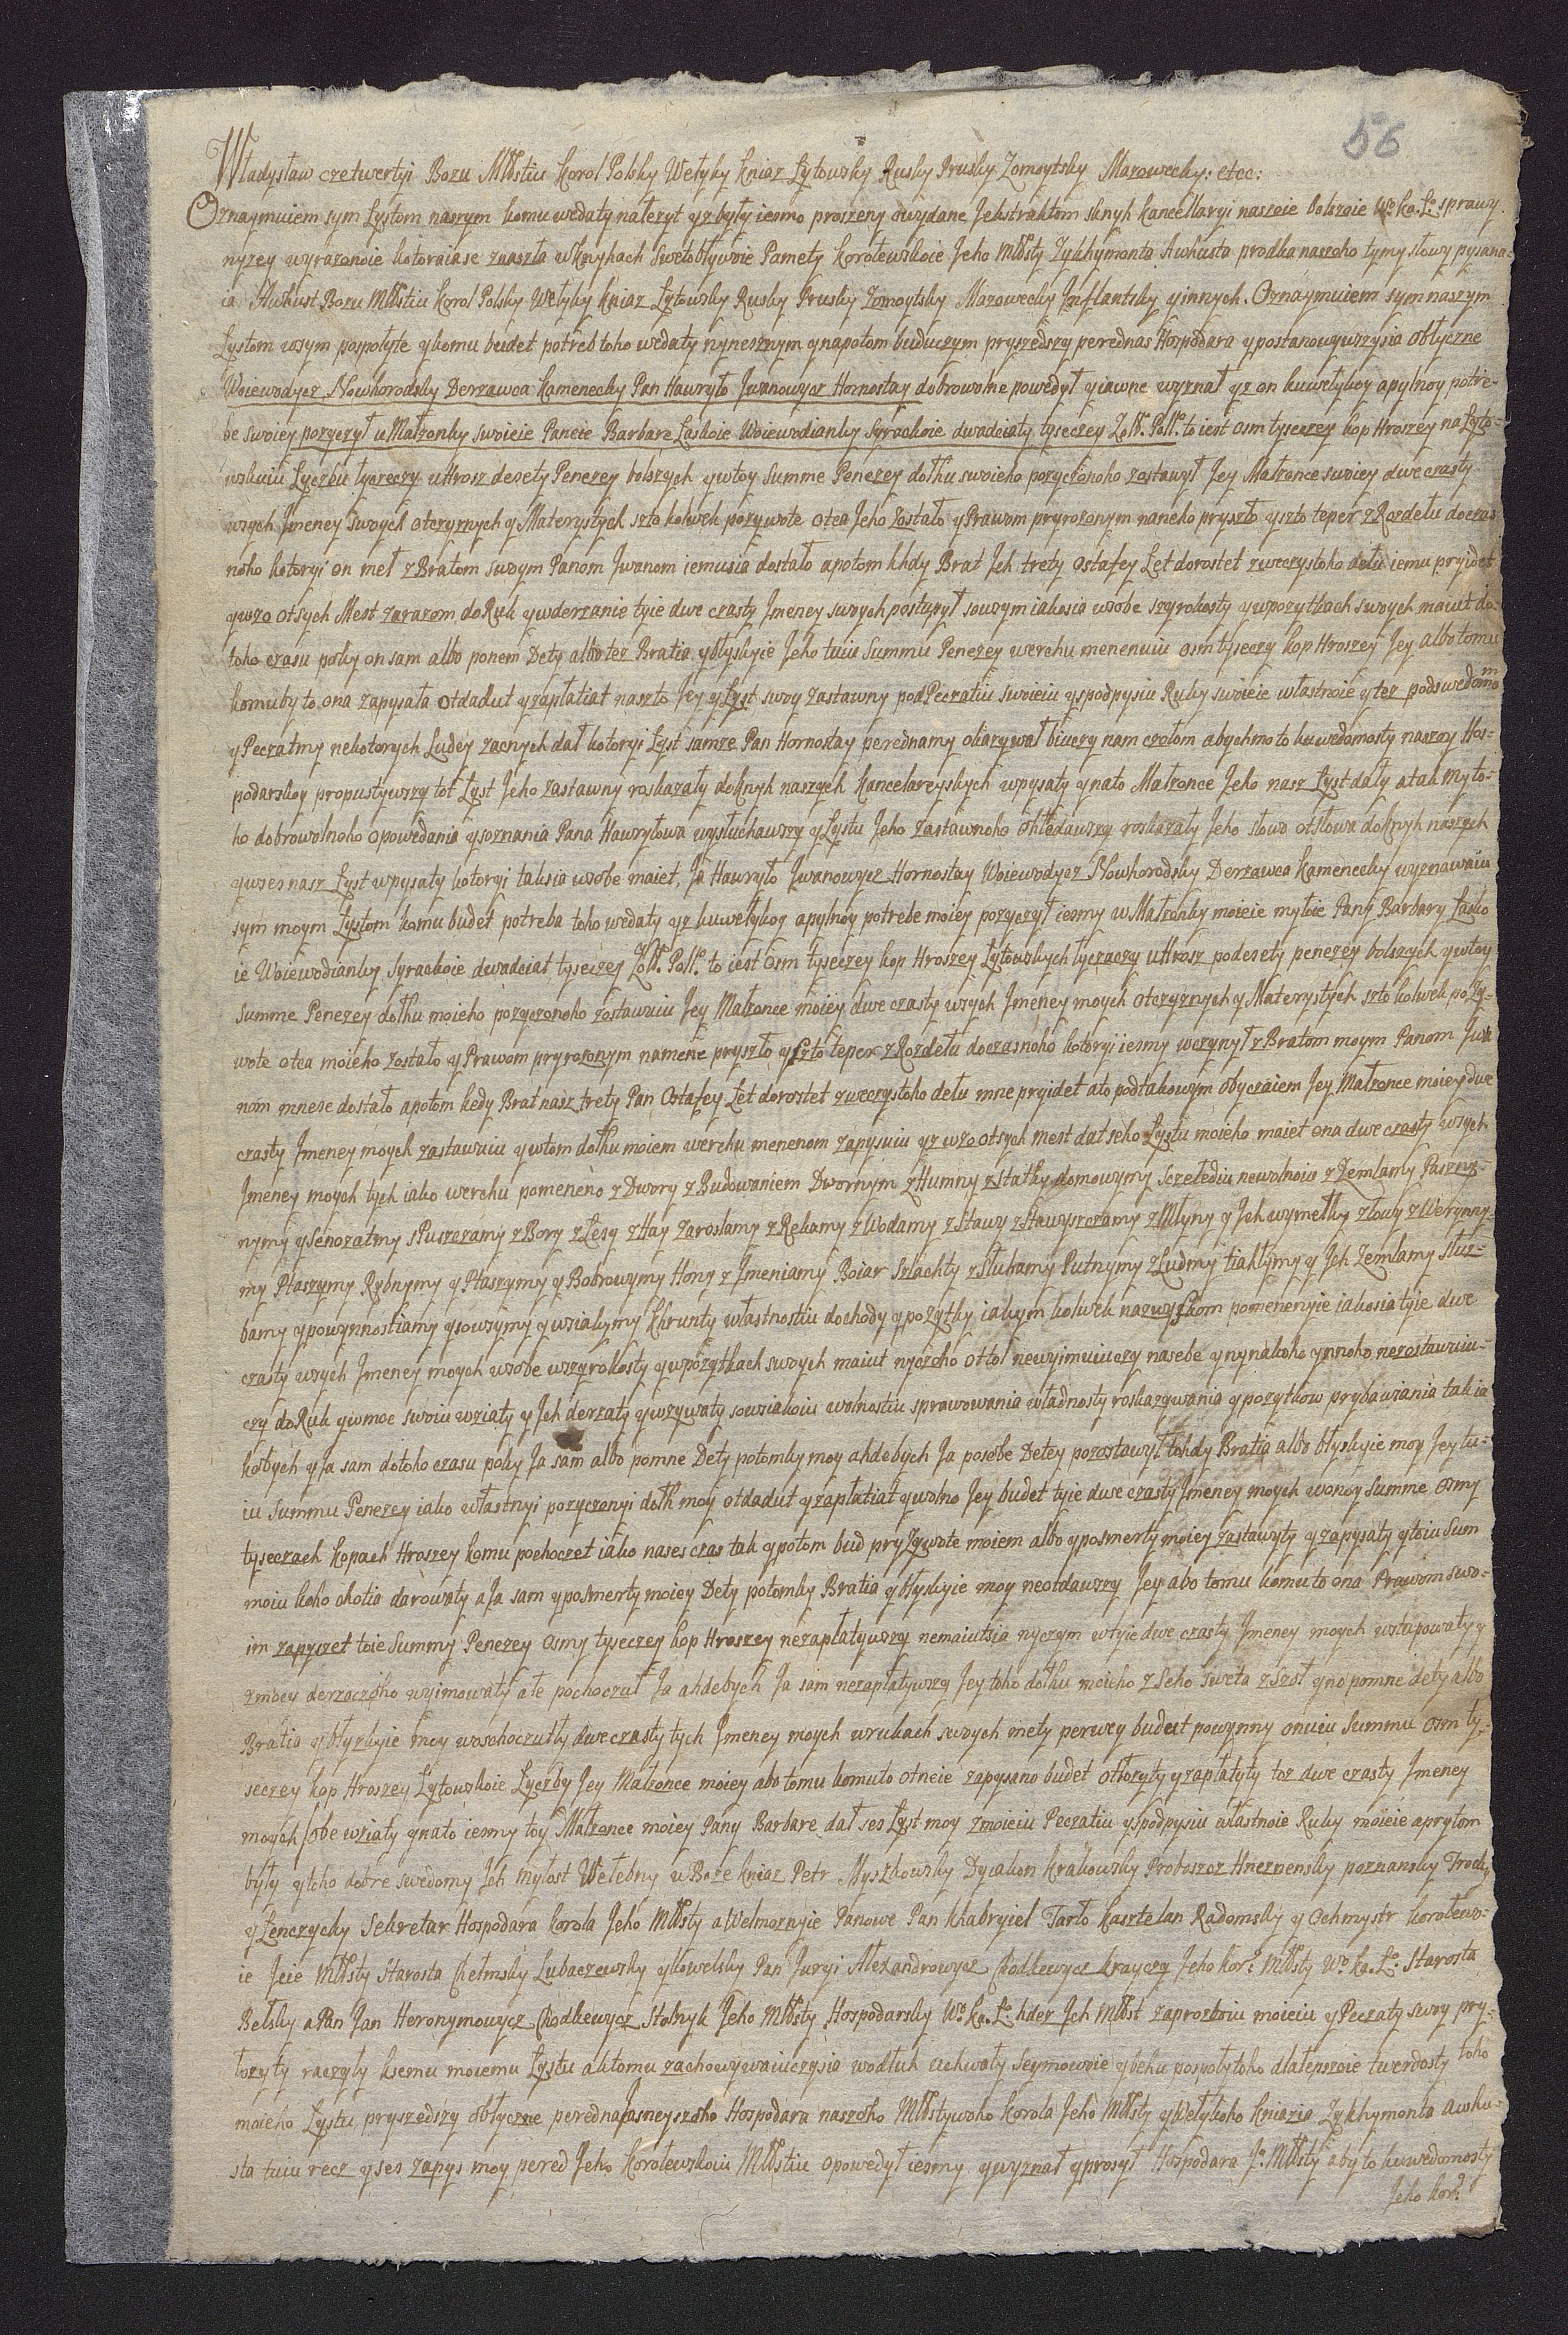 56
Władysław czetwertyi Bozu Młstiu Korol Polsky Wełyky Kniaz Łytowsky Rusky Prusky Zomoytsky Mazowecky: etcc:
Oznaymuiem sym Łystom naszym komu wedaty nałezyt yz byly iesmo proszeny owydane Jekstraktom sknyh Kancellaryi naszoie bolszoie Wo. ka. Lo. sprawy
nyzey wyrazonoie kotoraiase znaszła wknyhach Swetobływoie Pamety Korolewskoie Jeho Młsty Zykhymonta Awhusta prodka naszoho tymy słowy pysana-
ia. Awhust Bozu Młstiu Korol Polsky Wełyky Kniaz Łytowsky Rusky Prusky Zomoytsky Mazowecky Jnflantsky yinnych. Oznaymuiem sym naszym
Łystom wsym pospołyte ykomu budet potreb toho wedaty nynesznym ynapotom buduczym pryszedszy perednas Hospodara ypostanowywszysia obłyczne
Woiewodycz Nowhorodsky Derzawca Kamenecky Pan Hawryło Jwanowycz Hornostay dobrowolne powedył yiawne wyznał yz on kuwełykoy apylnoy potre-
be swoiey pozyczył uMałzonky swoieie Paneie Barbare Łaskoie Woiewodianky Syrackoie dwadciaty tyseczey Zołł. Poll. to iest osm tyseczey kop Hroszey na Łyto-
wskuiu Łyczbu łyczeczy uHrosz desety Penezey bolszych ywtoy Summe Penezey dołhu swoieho pozyczonoho zostawył Jey Małzonce swoiey dwe czasty
wsych Jmeney swoych otczyznych y Materystych szto kolwek pozywote otca Jeho zostało y Prawom pryrozonym naneho pryszło yszto teper z Rozdełu doczas
noho kotoryi on meł z Bratom swoym Panom Jwanom iemusia dostało apotom khdy Brat Jch trety Ostafey Łet dorostet zweczystoho dełu iemu pryidet
ywzo otsych Mest zarazom doRuk ywderzanie tyie dwe czasty Jmeney swoych postupył sowsym iakosia wsobe szyrokosty ywpozytkach swoych maiut do-
toho czasu poky on sam albo ponem Dety albotez Bratia yblyskyie Jeho tuiu Summu Penezey werchu menenuiu osm tyseczy kop Hroszey Jey albo tomu
komuby to ona zapysała otdadut yzapłatiat naszto Jey y Łyst swoy zastawny pod Peczatiu swoieiu yspodpysiu Ruky swoieie własnoie ytez podswedomom
y Peczatmy nekotorych Ludey zacnych dał kotoryi Łyst samze Pan Hornostay perednamy okazywał biuczy nam czołom abychmo to kuwedomosty naszoy Hos-
podarskoy propustywszy tot Łyst Jeho zastawny roskazały doknyh naszych Kancelareyskych wpysaty ynato Małzonce Jeho nasz Łyst dały atak my to-
ho dobrowolnoho opowedania ysoznania Pana Hawryłowa wysłuchawszy y Łystu Jeho zastawnoho ohledawszy roskazały Jeho słowo otsłowa doknyh naszych
ywses nasz Łyst wpysaty kotoryi taksia wsobe maiet, Ja Hawryło Jwanowycz Hornostay Woiewodycz Nowhorodsky Derzawca Kamenecky wyznawaiu
sym moym Łystom komu budet potreba toho wedaty yz kuwełykoy apylnoy potrebe moiey pozyczył iesmy w Małzonky moieie myłoie Pany Barbary Łasko
ie Woiewodianky Syrackoie dwadciat tyseczey Zołł. Poll. to iest osm tyseczey kop Hroszey Łytowskych łyczaczy uHrosz podesety penezey bolszych ywtoy
Summe Penezey dołhu moieho pozyczonoho zostawuiu Jey Małzonce moiey dwe czasty wsych Jmeney moych otczyznych y Materystych szto kolwek po Zy-
wote otca moieho zostało y Prawom pryrozonym namene pryszło yszto teper z Rozdełu doczasnoho kotoryi iesmy wczynył z Bratom moym Panom Jwa
nom mnese dostało apotom kedy Brat nasz trety Pan Ostafey Łet dorostet zweczystoho dełu mne pryidet ato podtakowym obyczaiem Jey Małzonce moiey dwe
czasty Jmeney moych zastawuiu ywtom dołhu moiem werchu menenom zapysuiu yz wzo otsych mest dat seho Łystu moieho maiet ona dwe czasty wsych
Jmeney moych tych iako werchu pomeneno z Dwory z Budowaniem Dwornym z Humny z statky domowymy sczeledzu newolnoiu z Zemlamy Paszny-
nymy y Senozatmy sPuszczamy z Bory z Łesy z Hay zarosłamy z Rekamy z Wodamy z Stawy z Stawyszczamy z Młyny y Jch wymełky złowy z Werynny-
my Ptaszymy Rybnymy y Ptaszymy y Bobrowymy Hony z Jmeniamy Boiar Szlachty z Słuhamy Putnymy z Ludmy tiahłymy y Jch Zemlamy Słuz-
bamy ypowynnostiamy ysowsymy ywsiakymy Khrunty własnostiu dochody ypozytky iakym kolwek nazwyskom pomenenyie iakosia tyie dwe
czasty wsych Jmeney moych wsobe wszyrokosty ywpozytkach swoych maiut nyczoho ottol newyimuiuczy nasebe ynynakoho ynnoho nezostawuiu-
czy doRuk ywmoc swoiu wziaty y Jch derzaty ywzywaty sowsiakoiu wolnostiu sprawowania władnosty roskazywania ypozytkow prybawiania tak ia
kobych y Ja sam dotoho czasu poky Ja sam albo pomne Dety potomky moy ahdebych Ja posobe Detey pozostawył tohdy Bratia albo błyskyie moy Jey tu-
iu Summu Penezey iako własnyi pozyczonyi dołh moy otdadut yzapłatiat ywolno Jey budet tyie dwe czasty Jmeney moych wonoy Summe osmy
tyseczach kopach Hroszey komu pochoczet iako nases czas tak ypotom bud pry Zywote moiem albo yposmerty moiey zastawyty yzapysaty ytoiu Sum
moiu koho chotia darowaty a Ja sam yposmerty moiey Dety potomky Bratia y błyskyie moy neotdawszy Jey abo tomu komu to ona Prawom swo-
im zapyszet toie Summy Penezey osmy tyseczey kop Hroszey nezapłatywszy nemaiutsia nyczym wtyie dwe czasty Jmeney moych wstupowaty y
zmocy derzaczoho wyimowaty ałe pochoczut Ja ahdebych Ja sam nezapłatywszy Jey toho dołhu moieho z Seho Sweta zszoł yno pomne dety albo
Bratia y błyzkyie moy woschoczutły dwe czasty tych Jmeney moych wrukach swoych mety perwey budut powynny onuiu Summu osm ty-
seczey kop Hroszey Łytowskoie Łyczby Jey Małzonce moiey abo tomu komuto otneie zapysano budet otłozyty yzapłatyty toz dwe czasty Jmeney
moych sobe wziaty ynato iesmy toy Małzonce moiey Pany Barbare dał ses Łyst moy zmoieiu Peczatiu yspodpysiu własnoie Ruky moieie aprytom
były ytoho dobre swedomy Jch Myłost Wełebny uBoze Kniaz Petr Myszkowsky Dycakon Krakowsky Proboszcz Hneznensky poznansky Trocky
y Łenczycky Sekretar Hospodara Korola Jeho Młsty a Welmoznyie Panowe Pan Khabryiel Tarło Kasztelan Radomsky y Ochmystr Korolewo-
ie Jeie Młsty Starosta Chełmsky Lubaczewsky ykowelsky Pan Juryi Alexandrowycz Chodkewycz Krayczy Jeho Kor. Młsty Wo. Ka. Lo. Starosta
Bełsky a Pan Jan Heronymowycz Chodkewycz Stolnyk Jeho Młsty Hospodarsky Wo. Ka. Lo. hdez Jch Młst zaprozboiu moieiu y Peczaty swoy pry-
łozyty raczyły ksemu moiemu Łystu aktomu zachowywaiuczysia wodłuh uchwały Seymowoie ybehu pospołytoho dlałepszoie twerdosty toho
moieho Łystu pryszedszy obłyczne perednaJasneyszoho Hospodara naszoho Młstywoho Korola Jeho Młsty y Wełykoho Kniazia Zykhymonta Awhu-
sta tuiu recz yses zapys moy pered Jeho Korolewskoiu Młstiu opowedył iesmy ywyznał yprosył Hospodara Jo. Młsty aby to kuwedomosty
Jeho Kor.